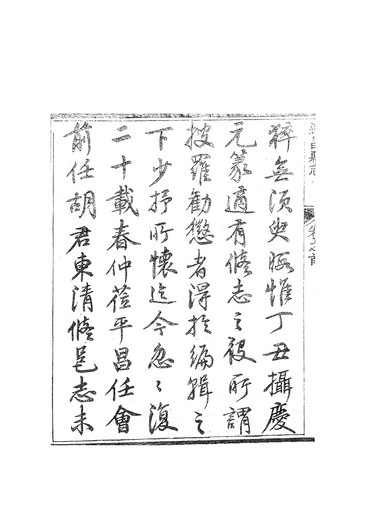 粹無須臾暇惟丁丑攝慶
元篆適有修志之役所謂
搜羅勸懲者得於編輯之
下少抒所懷迄今忽〻復
二十載春仲蒞平昌任會
前任胡君東清修邑志未